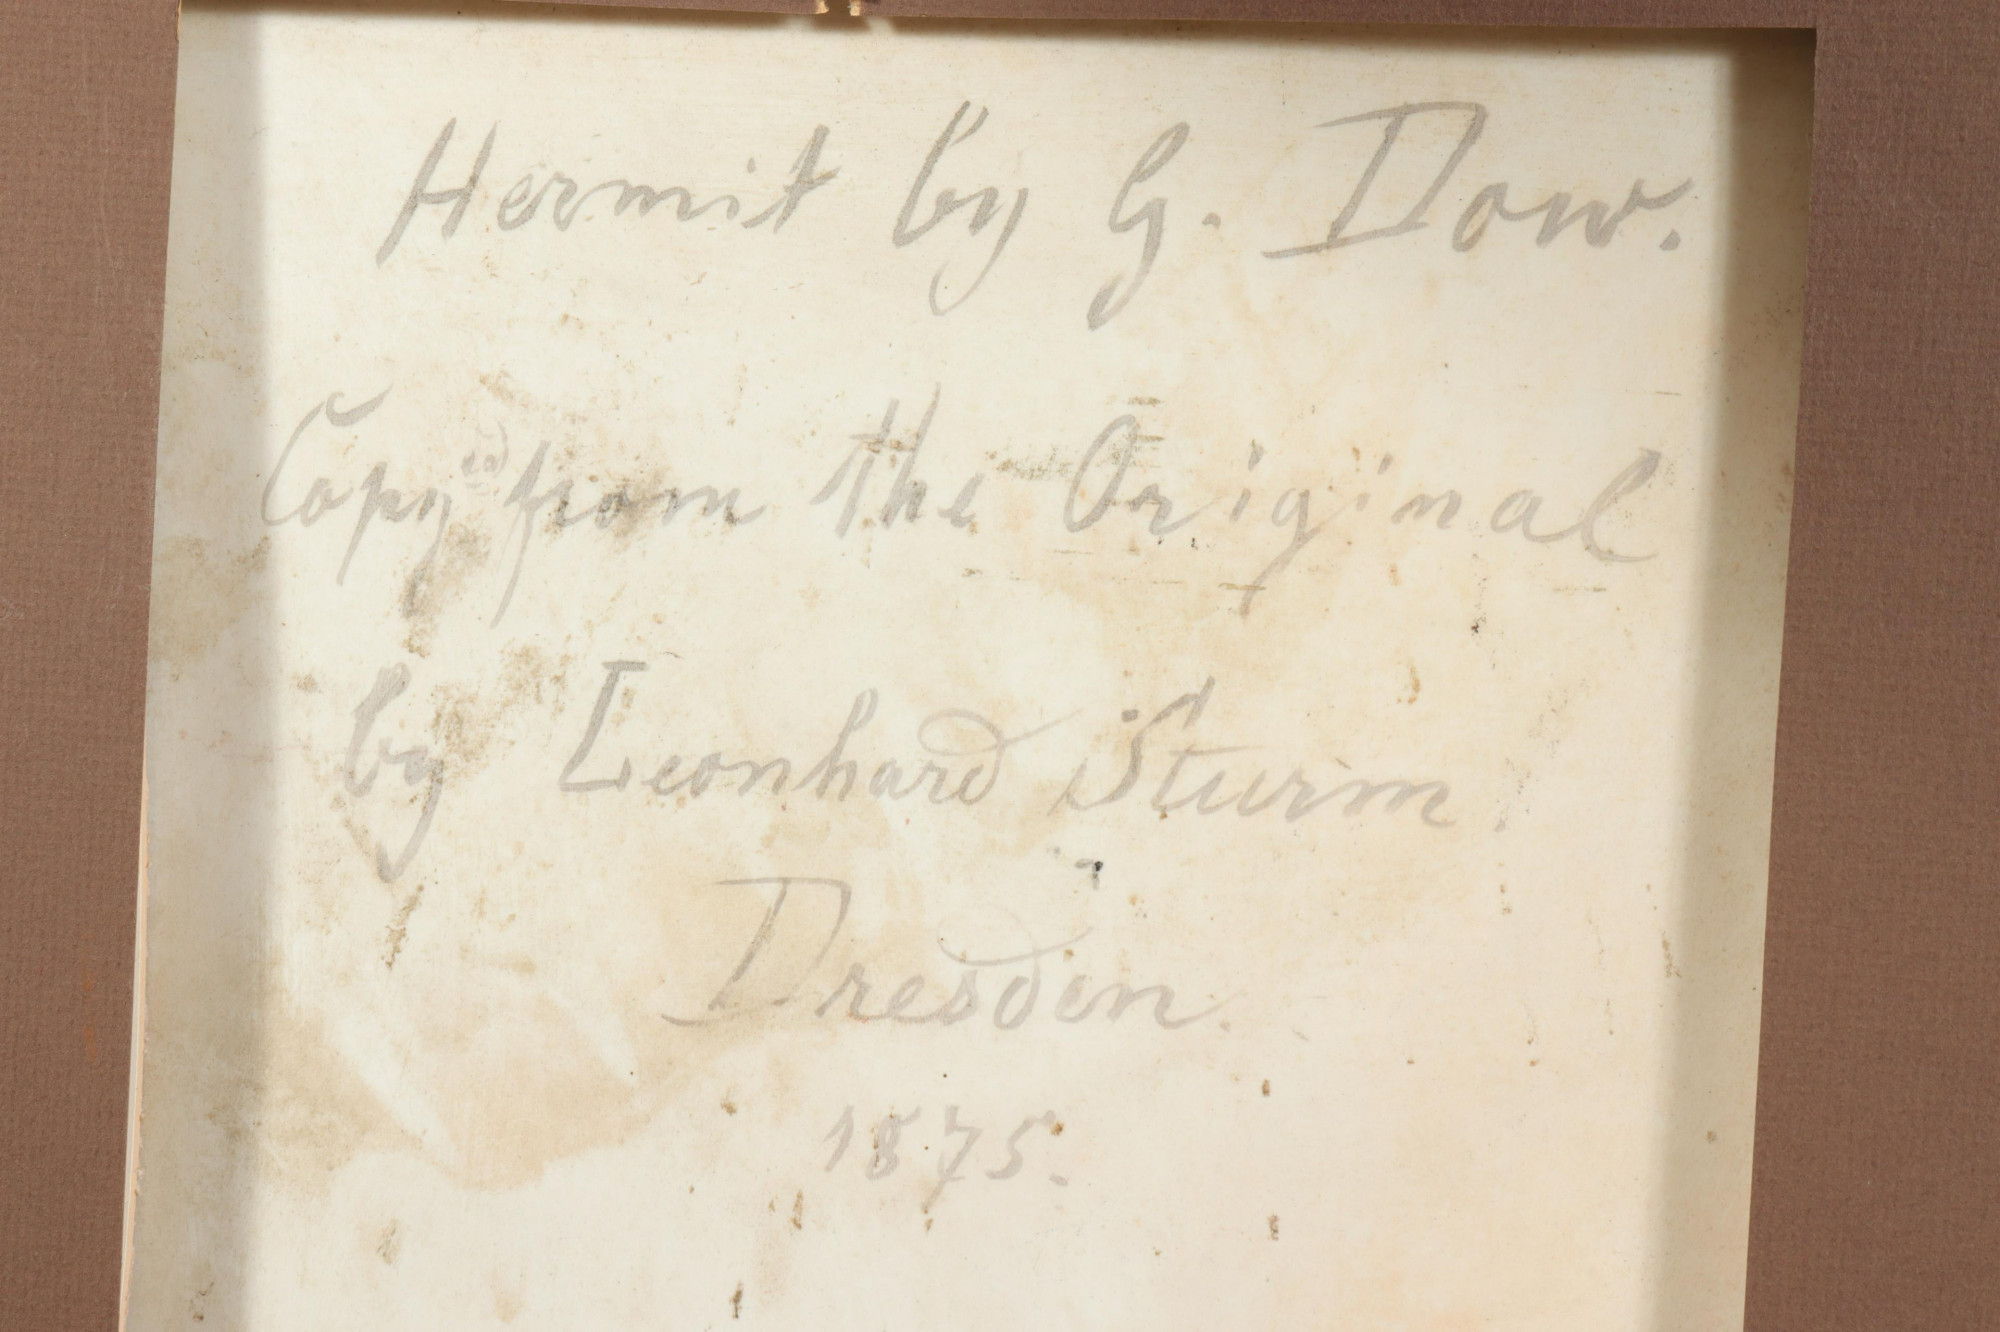 Hermit by G. Dow.
Copy from the Original
by Leonhard Sturm.
Dresden.
1875.